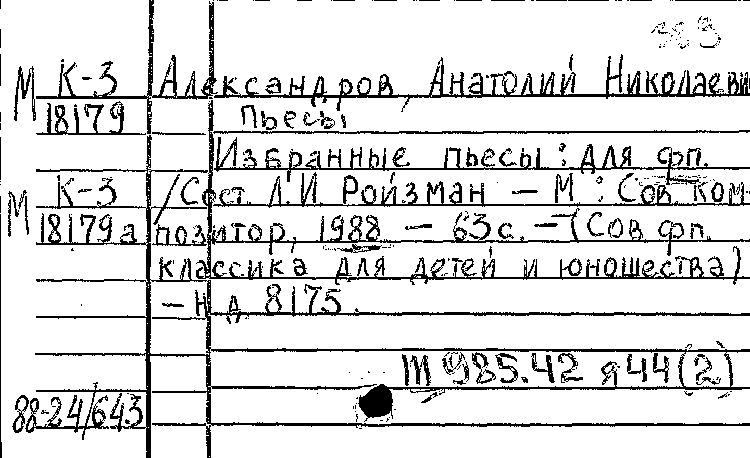 383
М К-3 Александров, Анатолий Николаеви
18179 Пьесы
Избранные пьесы : для фп.
М К-3 /Сост. Л.И. Ройзман – М : Сов. ком-
18179а позитор, 1988 – 63с. – (Сов фп.
классика для детей и юношества)
– Н д 8175.
Ш 985.42 я44(2)
88-24/643